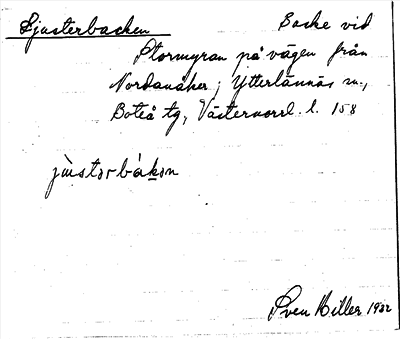 Ljusterbacken Backe vid
Stormyran på vägen från
Nordanåker; Ytterlännäs sn.,
Boteå tg, Västernorrl. l. 158
jùstərbákən
Sven Hiller 1932